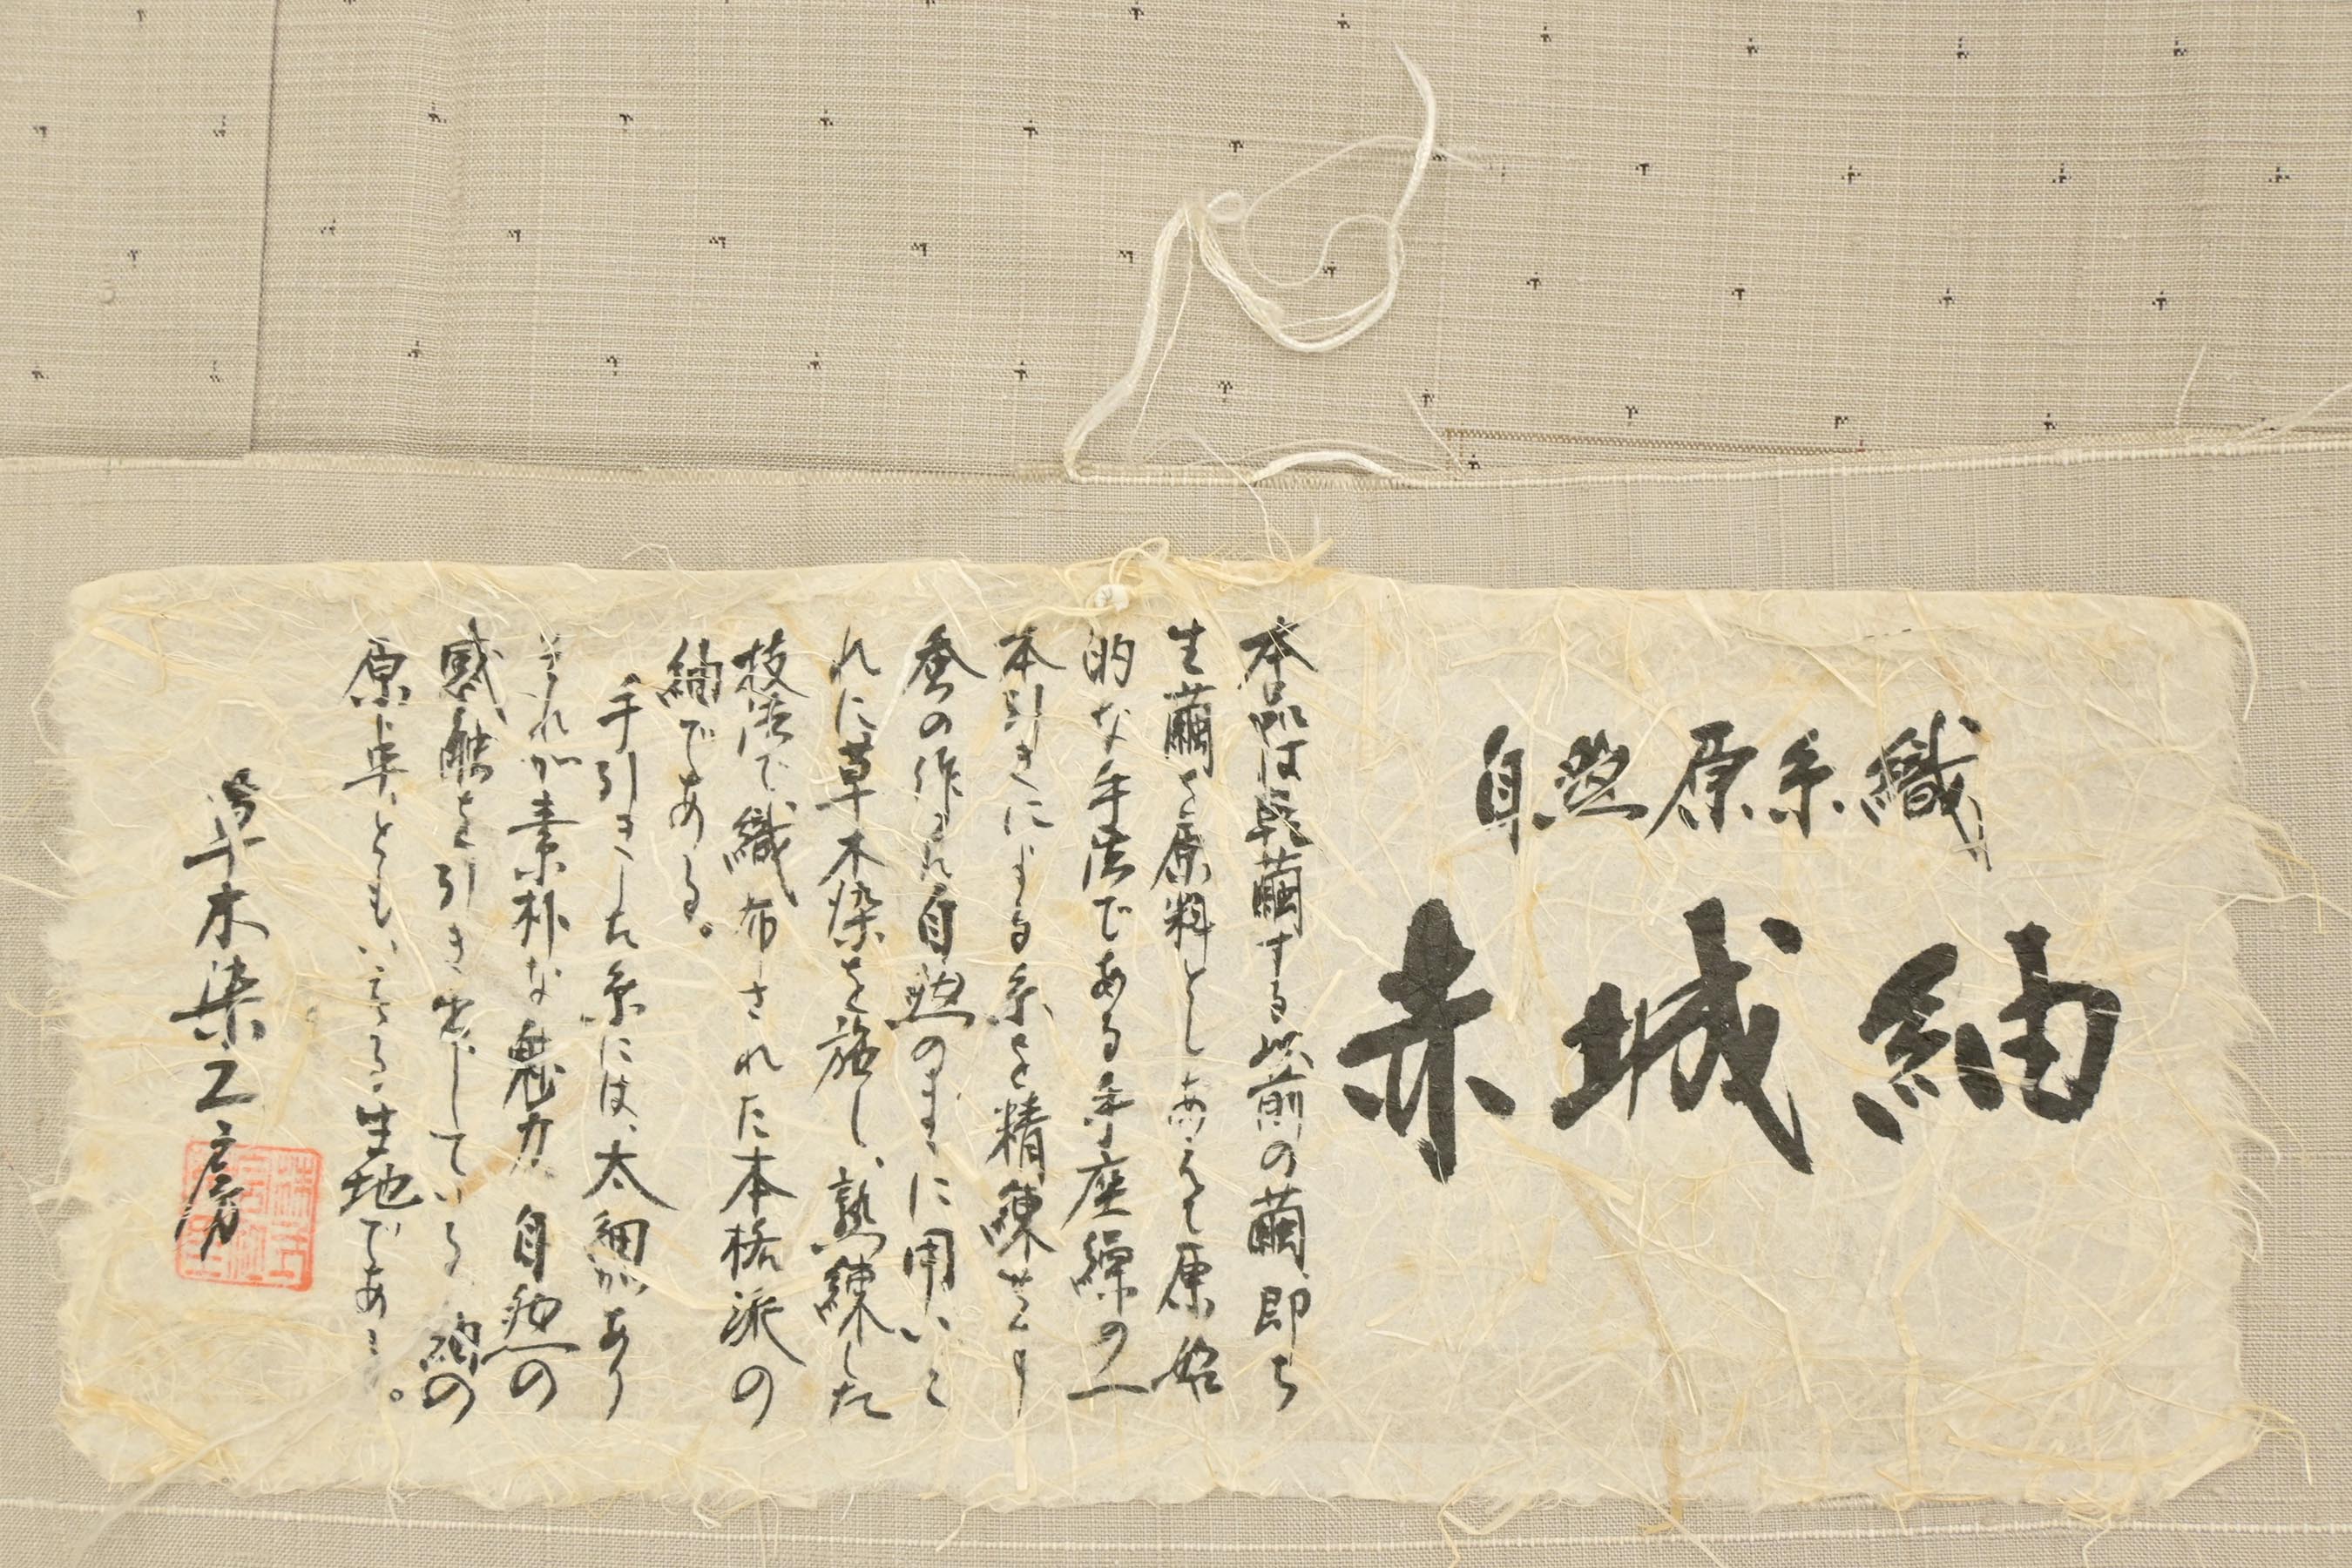 自然原糸織
赤城紬
本品は乾繭する以前の繭、即ち
生繭を原料としあえて原始
的な手法である手座繰の一
本引きによる糸を精練せず
蚕の作った自然のままに用いこ
れに草木染を施し、熟練した
技法で織布された本格派の
紬である。
手引きした糸には、太細があり
それが素朴な魅力、自然の
感触を引き出している。紬の
原点ともいえる生地である。
草木染工房